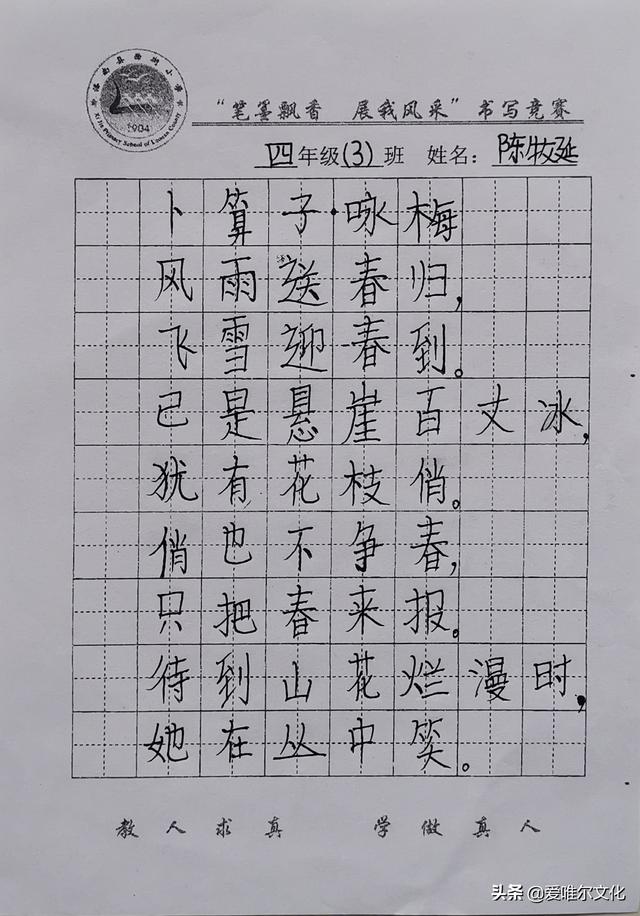 “笔墨飘香 展我风采”书写竞赛
四年级(3)班 姓名:陈牧延
卜算子·咏梅
风雨送春归,
飞雪迎春到。
已是悬崖百丈冰,
犹有花枝俏。
俏也不争春,
只把春来报。
待到山花烂漫时,
她在丛中笑。
教人求真 学做真人
1904
头条 @爱唯尔文化